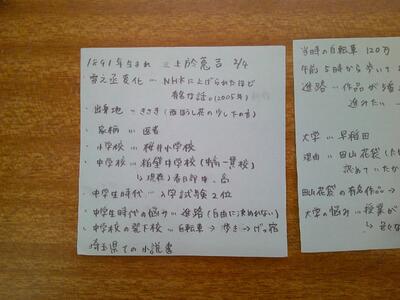 1891年生まれ 三上於菟吉 2/4
雪之丞変化… NHKに上げられたほど
有名な話。(2005年)
・出身地…
・家柄… 医者
・小学校… 桜井小学校
・中学校… 粕壁中学校(中高一貫校)
↳現在)春日部市、高
・中学生時代… 入学試験2位
・中学生時代の悩み… 進路(自由に決めれない)
・中学校の登下校… 自転車→歩き→げ宿
埼玉県での小説書
当時の自転車 120万
午前5時から歩いて
進路… 作品が
進みたい
大学… 早稲田
理由… 田山花袋(た
認めていたか
田山花袋の有名作品→
大学の悩み… 授業が